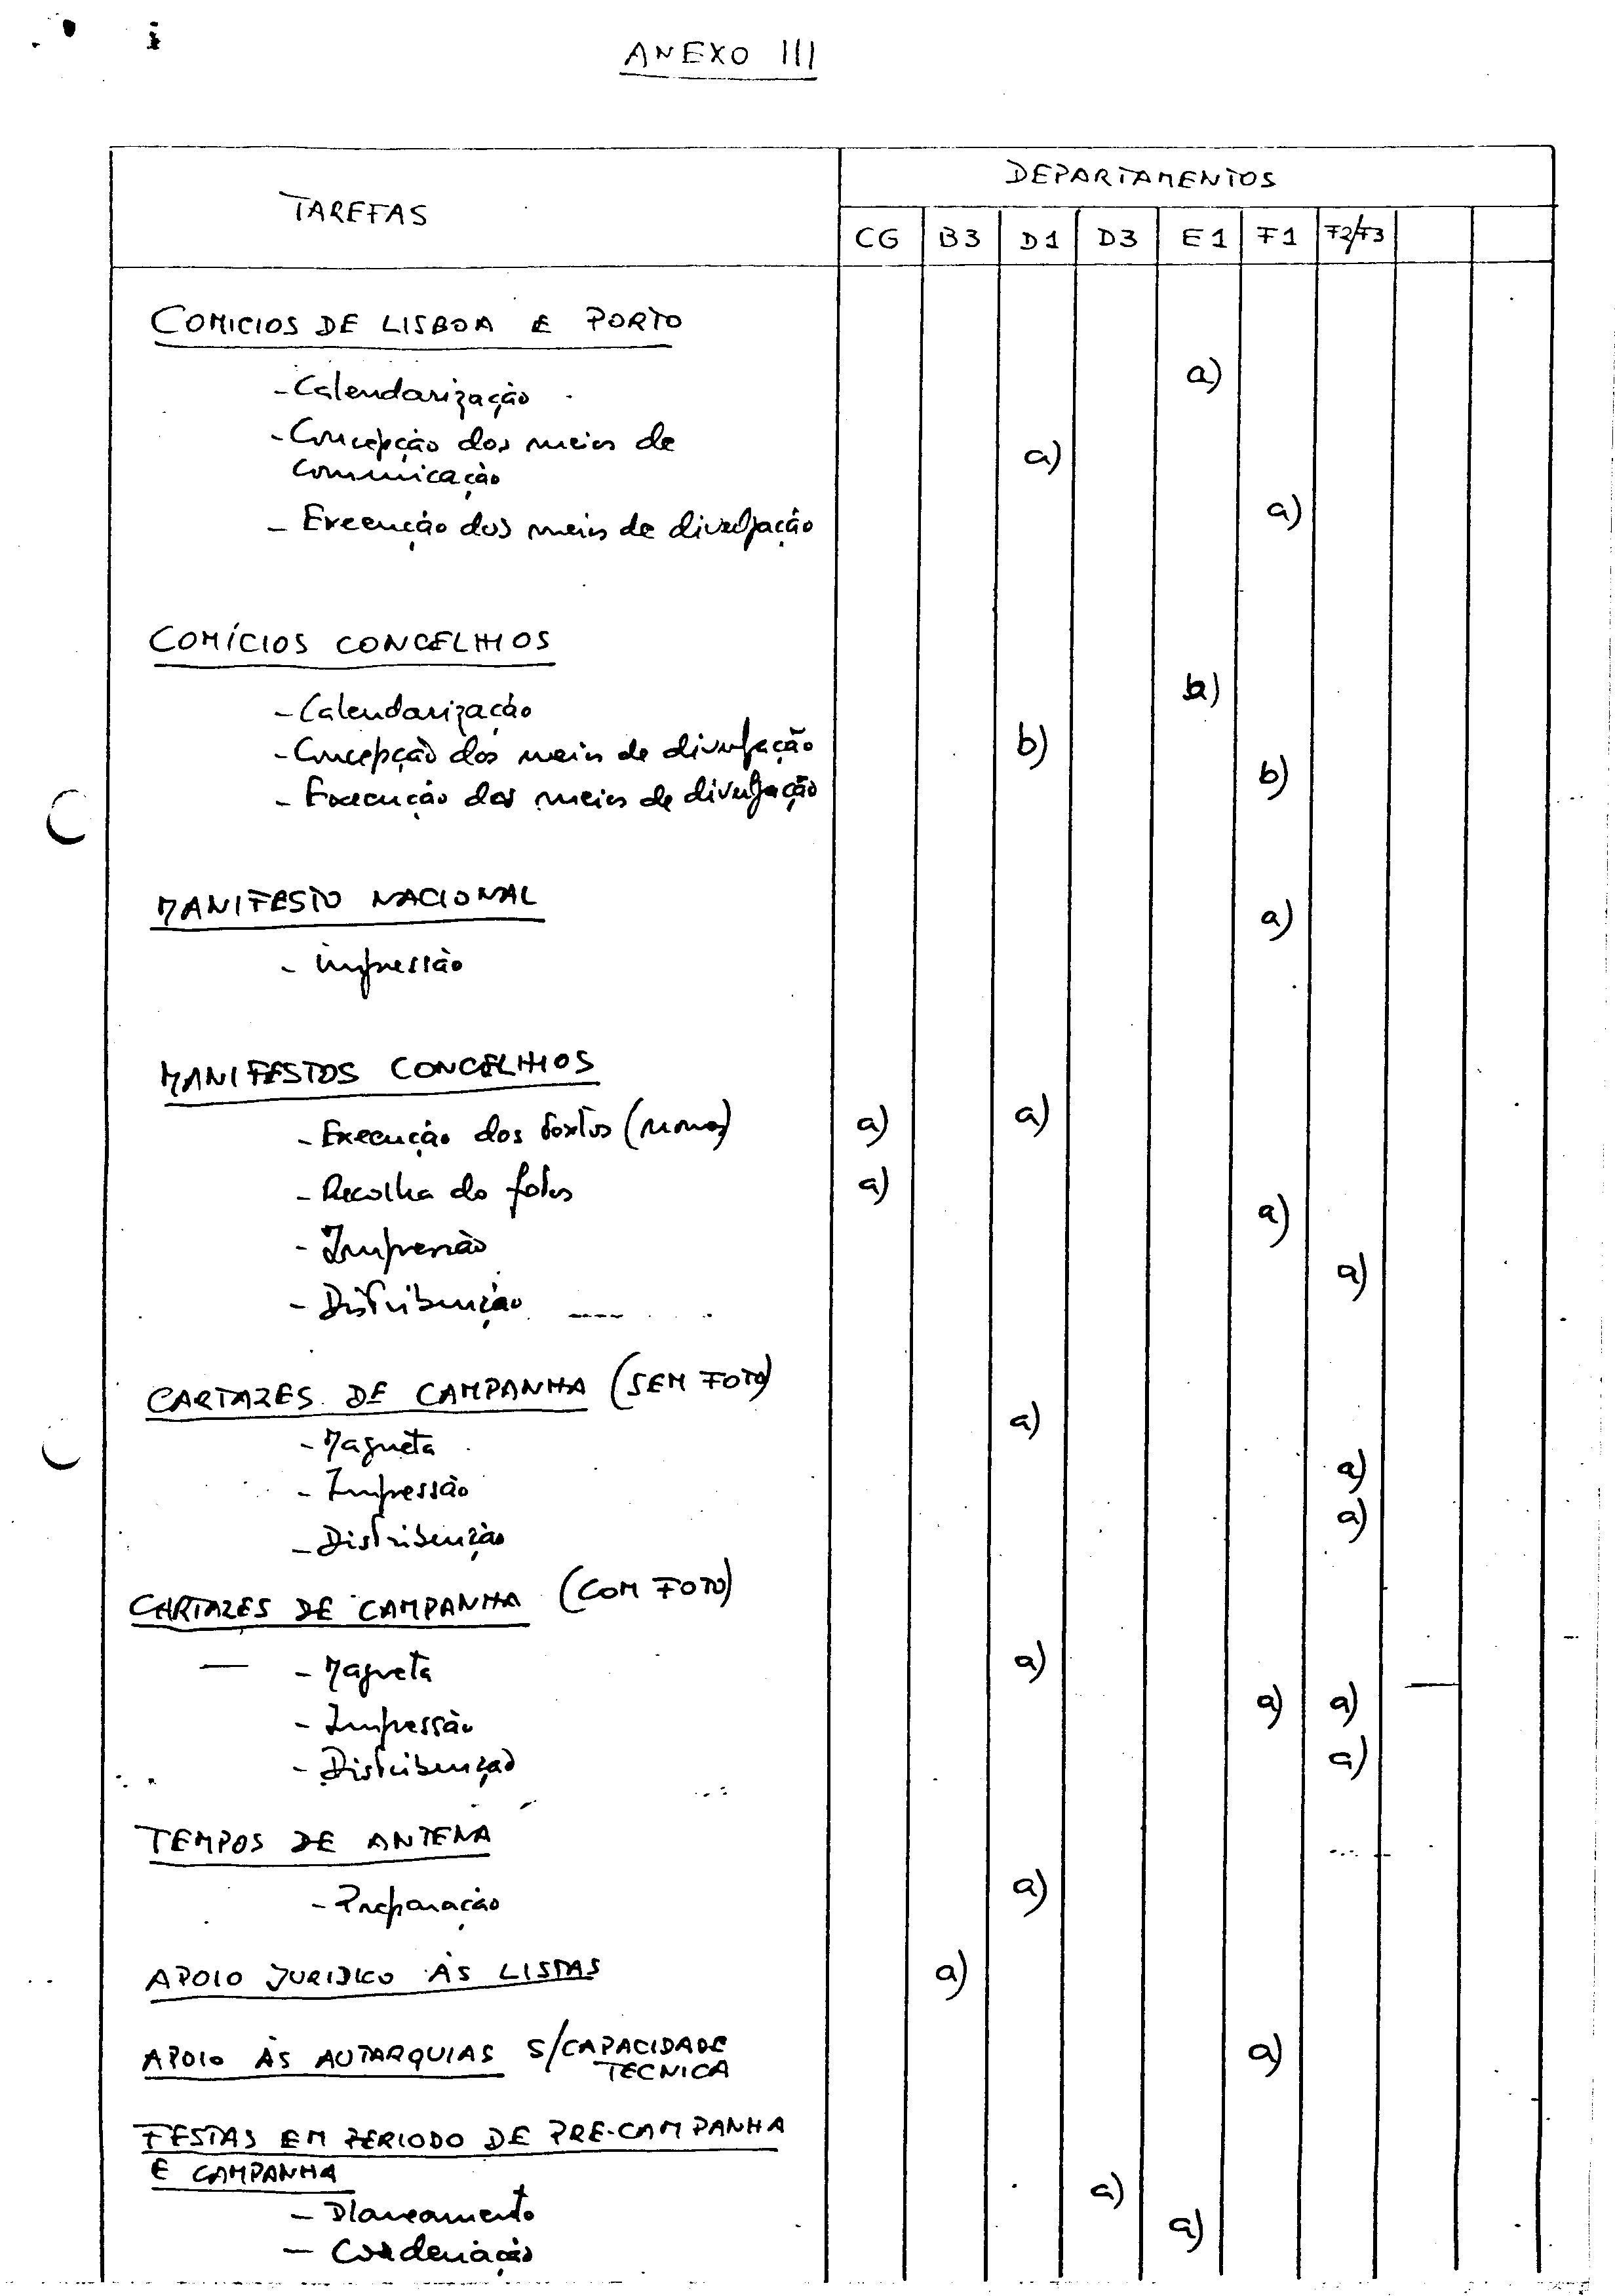 ANEXO III
TAREFAS
DEPARTAMENTOS
CG B3 D1 D3 E1 F1 F2/F3
COMICIOS DE LISBOA E PORTO
- Calendarização a)
- Concepção dos meios de
comunicação a)
- Execução dos meios de divulgação a)
COMÍCIOS CONCELHIOS
- Calendarização b)
- Concepção dos meios de divulgação b)
- Execução dos meios de divulgação b)
MANIFESTO NACIONAL
- impressão a)
MANIFESTOS CONCELHIOS
- Execução dos textos a) a)
- Recolha de fotos a)
- Impressão a)
- Distribuição a)
CARTAZES DE CAMPANHA (SEM FOTO)
- Maqueta a)
- Impressão a)
- Distribuição a)
CARTAZES DE CAMPANHA (COM FOTO)
- Maqueta a)
- Impressão a) a)
- Distribuição a)
TEMPOS DE ANTENA
- Preparação a)
APOIO JURIDICO ÀS LISTAS a)
APOIO ÀS AUTARQUIAS S/CAPACIDADE
TECNICA a)
FESTAS EM PERIODO DE PRE-CAMPANHA
E CAMPANHA
- Planeamento a)
- Coordenação a)